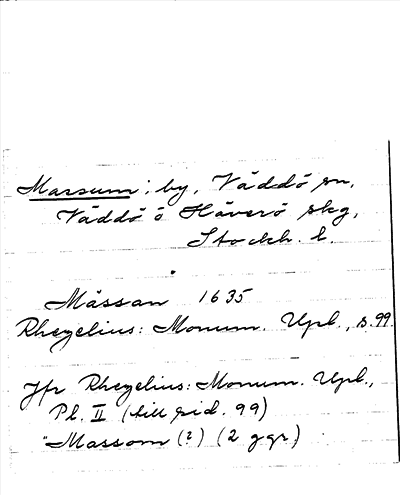 Massum; by, Väddö sn,
Väddö ö Häverö skg,
Stockh. l.
Mässan 1635
Rhezelius: Monum. Upl., s. 99.
Jfr Rhezelius: Monum. Upl.,
Pl. II (till sid. 99)
"Massom (?) (2 ggr)